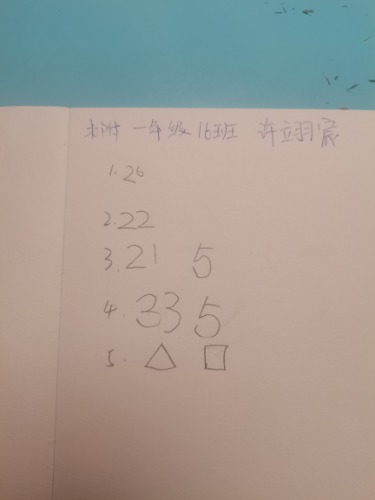 附 一年级 16班 许立羽宸
1. 26
2. 22
3. 21 5
4. 33 5
5. △ □